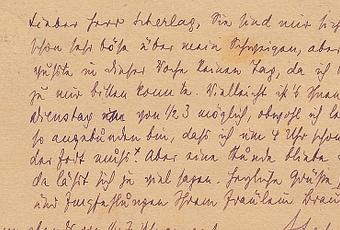 Lieber Herr Scherlag, Sie sind mir sich
schon sehr böse über mein Schweigen, aber
wußte in dieser Woche keinen Tag, da ich
zu mir bitten konnte. Vielleicht ist's Ihnen
dienstag von 1/2 3 möglich, obwohl ich
so angebunden bin, daß ich um 4 Uhr schon
der fort muß. Aber eine Stunde bliebe
da läßt sich ja viel sagen. Herzliche Grüße
und Empfehlungen Ihrem Fräulein Brau